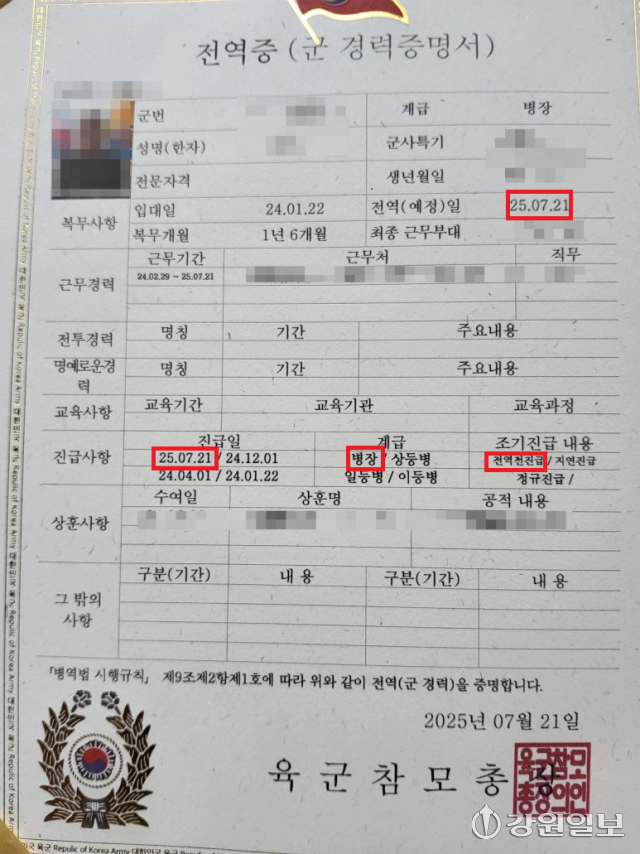 전역증 (군 경력증명서)
군번 계급 병장
성명(한자) 군사특기
전문자격 생년월일
복무사항
입대일 24.01.22 전역(예정)일 25.07.21
복무개월 1년 6개월 최종 근무부대
근무경력
근무기간 근무처 직무
24.02.29 ~ 25.07.21
전투경력 명칭 기간 주요내용
명예로운경력 명칭 기간 주요내용
교육사항 교육기간 교육기관 교육과정
진급사항
진급일 계급 조기진급 내용
25.07.21 / 24.12.01 병장 / 상등병 전역전진급 / 지연진급
24.04.01 / 24.01.22 일등병 / 이등병 정규진급 /
상훈사항
수여일 상훈명 공적 내용
그 밖의
사항
구분(기간) 내 용 구분(기간) 내 용
「병역법 시행규칙」 제9조제2항제1호에 따라 위와 같이 전역(군 경력)을 증명합니다.
2025년 07월 21일
육 군 참 모 총 장
육군참모
총장의인
강원일보
대한민국 육군 Republic of Korea Army 대한민국 육군 Republic of Korea Army